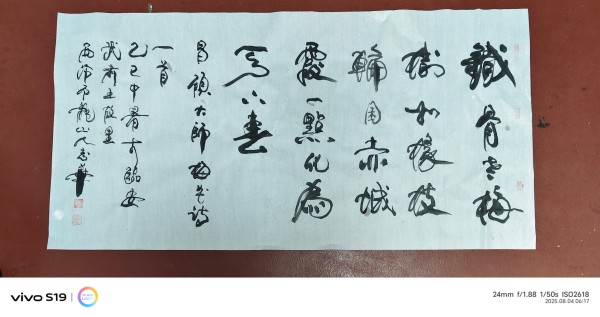 鐵骨老梅
樹如枝
輪囷赤城
霞一點化為
春
昌碩大師梅花詩
一首
乙巳中臨安
武肅王故里
龍山人志華
vivo S19
24mm f/1.88 1/50s ISO2618
2025.08.04 06:17